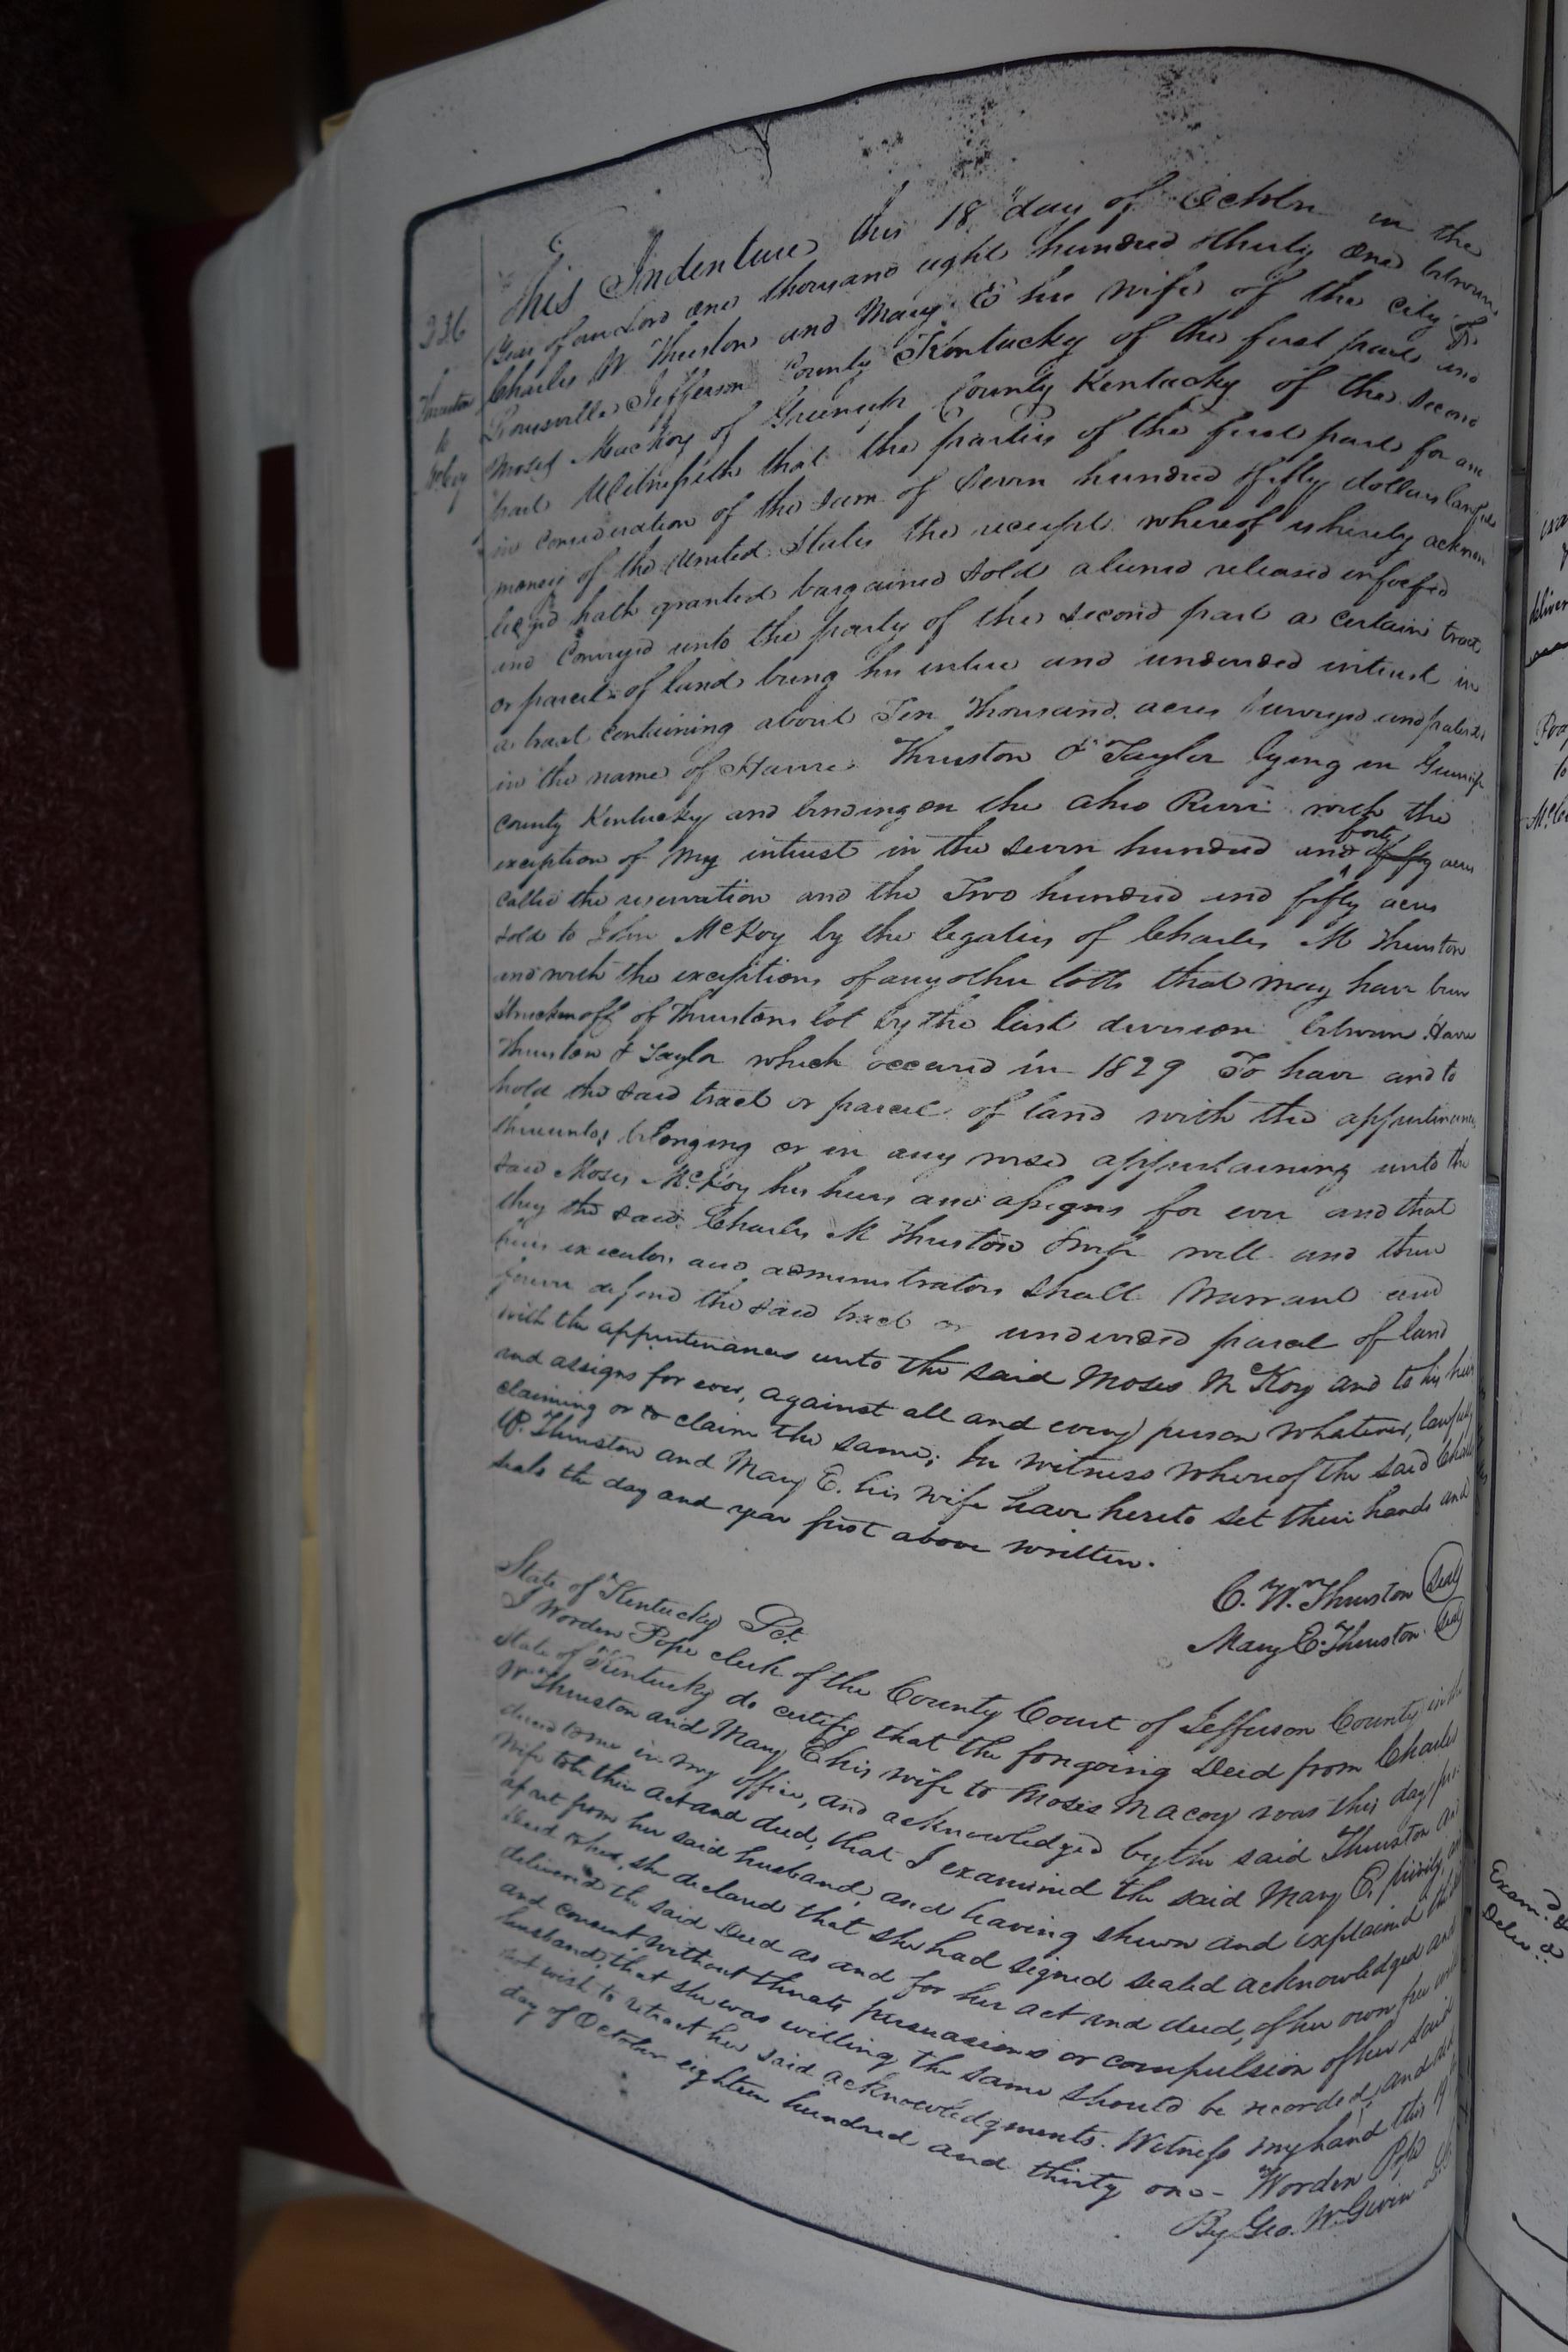 236
Thruston
to
McCoy
This Indenture this 18 day of October in the
Year of our Lord one thousand eight hundred thirty one between
Charles W Thruston and Mary E his wife of the City of
Louisville Jefferson County Kentucky of the first part and
Moses Mackoy of Greenup County Kentucky of the second
part Witnesseth that the parties of the first part for and
in consideration of the sum of Seven hundred fifty dollars lawful
money of the United States the receipt whereof is hereby acknow
ledg'd hath granted bargained sold aliened released enfeoffed
and Conveyed unto the party of the second part a certain tract
or parcel of land being his entire and undivided interest in
a tract containing about Ten Thousand acres surveyed and patented
in the name of Thruston & Taylor lying in Greenup
County Kentucky and binding on the Ohio River with the
exception of my interest in the seven hundred and forty acres
called the reservation and the Two hundred and fifty acres
sold to John McKoy by the legatees of Charles M Thruston
and with the exceptions of any other lotts that may have been
struck off of Thrustons lot by the last division between
Thruston & Taylor which occured in 1829 To have and to
hold the said tract or parcel of land with the appurtenances
thereunto belonging or in any wise appertaining unto the
said Moses McKoy his heirs and assigns for ever and that
they the said Charles M Thruston & wife will and their
heirs executors and administrators shall Warrant and
forever defend the said tract or undivided parcel of land
with the appurtenances unto the said Moses McKoy and to his heirs
and assigns for ever, against all and every person whatever, lawfully
claiming or to claim the same; In witness whereof the said Charles
W. Thruston and Mary E. his wife have hereto set their hands and
seals the day and year first above written.
C. Wm. Thruston Seal
Mary E. Thruston Seal
State of Kentucky Sct.
I Worden Pope clerk of the County Court of Jefferson County in the
State of Kentucky do certify that the foregoing Deed from Charles
Wm Thruston and Mary E his wife to Moses Macoy was this day pro
duced to me in my office, and acknowledged by the said Thruston and
wife to be their act and deed, that I examined the said Mary E. privily and
apart from her said husband, and having shewn and explained the
Deed to her, she declared that she had signed sealed acknowledged and
delivered the said Deed as and for her act and deed, of her own free will
and consent without threats persuasions or compulsion of her said
husband, that she was willing the same should be recorded, and did
not wish to retract her said acknowledgments. Witness my hand this 19
day of October eighteen hundred and thirty one - Worden Pope
By Geo. W. Givin
Exam.d &
Deliv.d